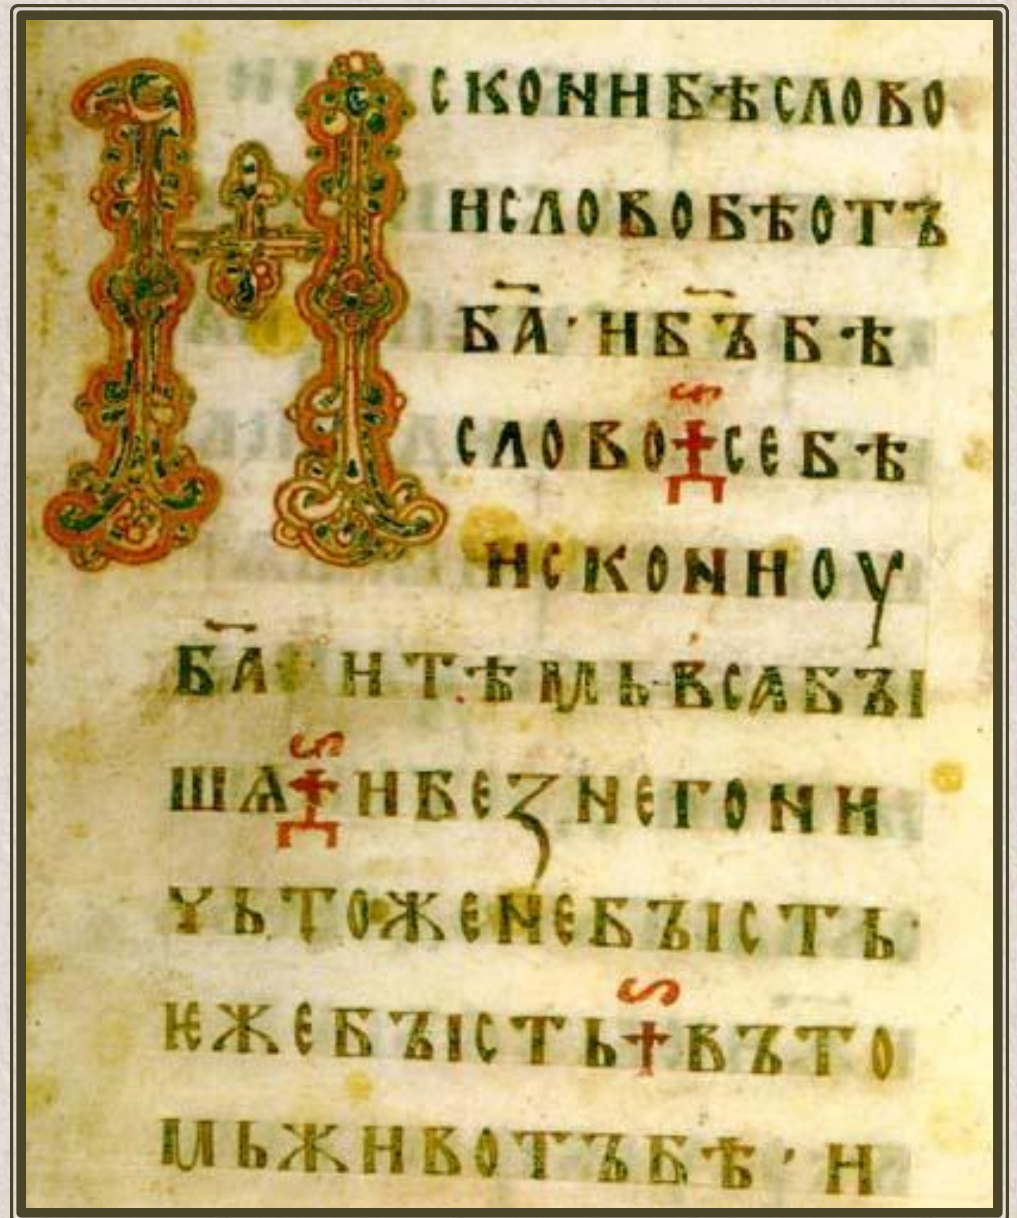 ИСКОНИБѢСЛОВО
ИСЛОВОБѢОТЪ
Б҃А·ИБ҃ЪБѢ
СЛОВО☦СЕБѢ
ИСКОНИОУ
Б҃А·ИТѢМЬВСАБЪІ
ШѦ☦ИБЕЗНЕГОНИ
ЧЬТОЖЕНЕБЪІСТЬ·
ѤЖЕБЪІСТЬ☦ВЪТО
МЬЖИВОТЪБѢ·И